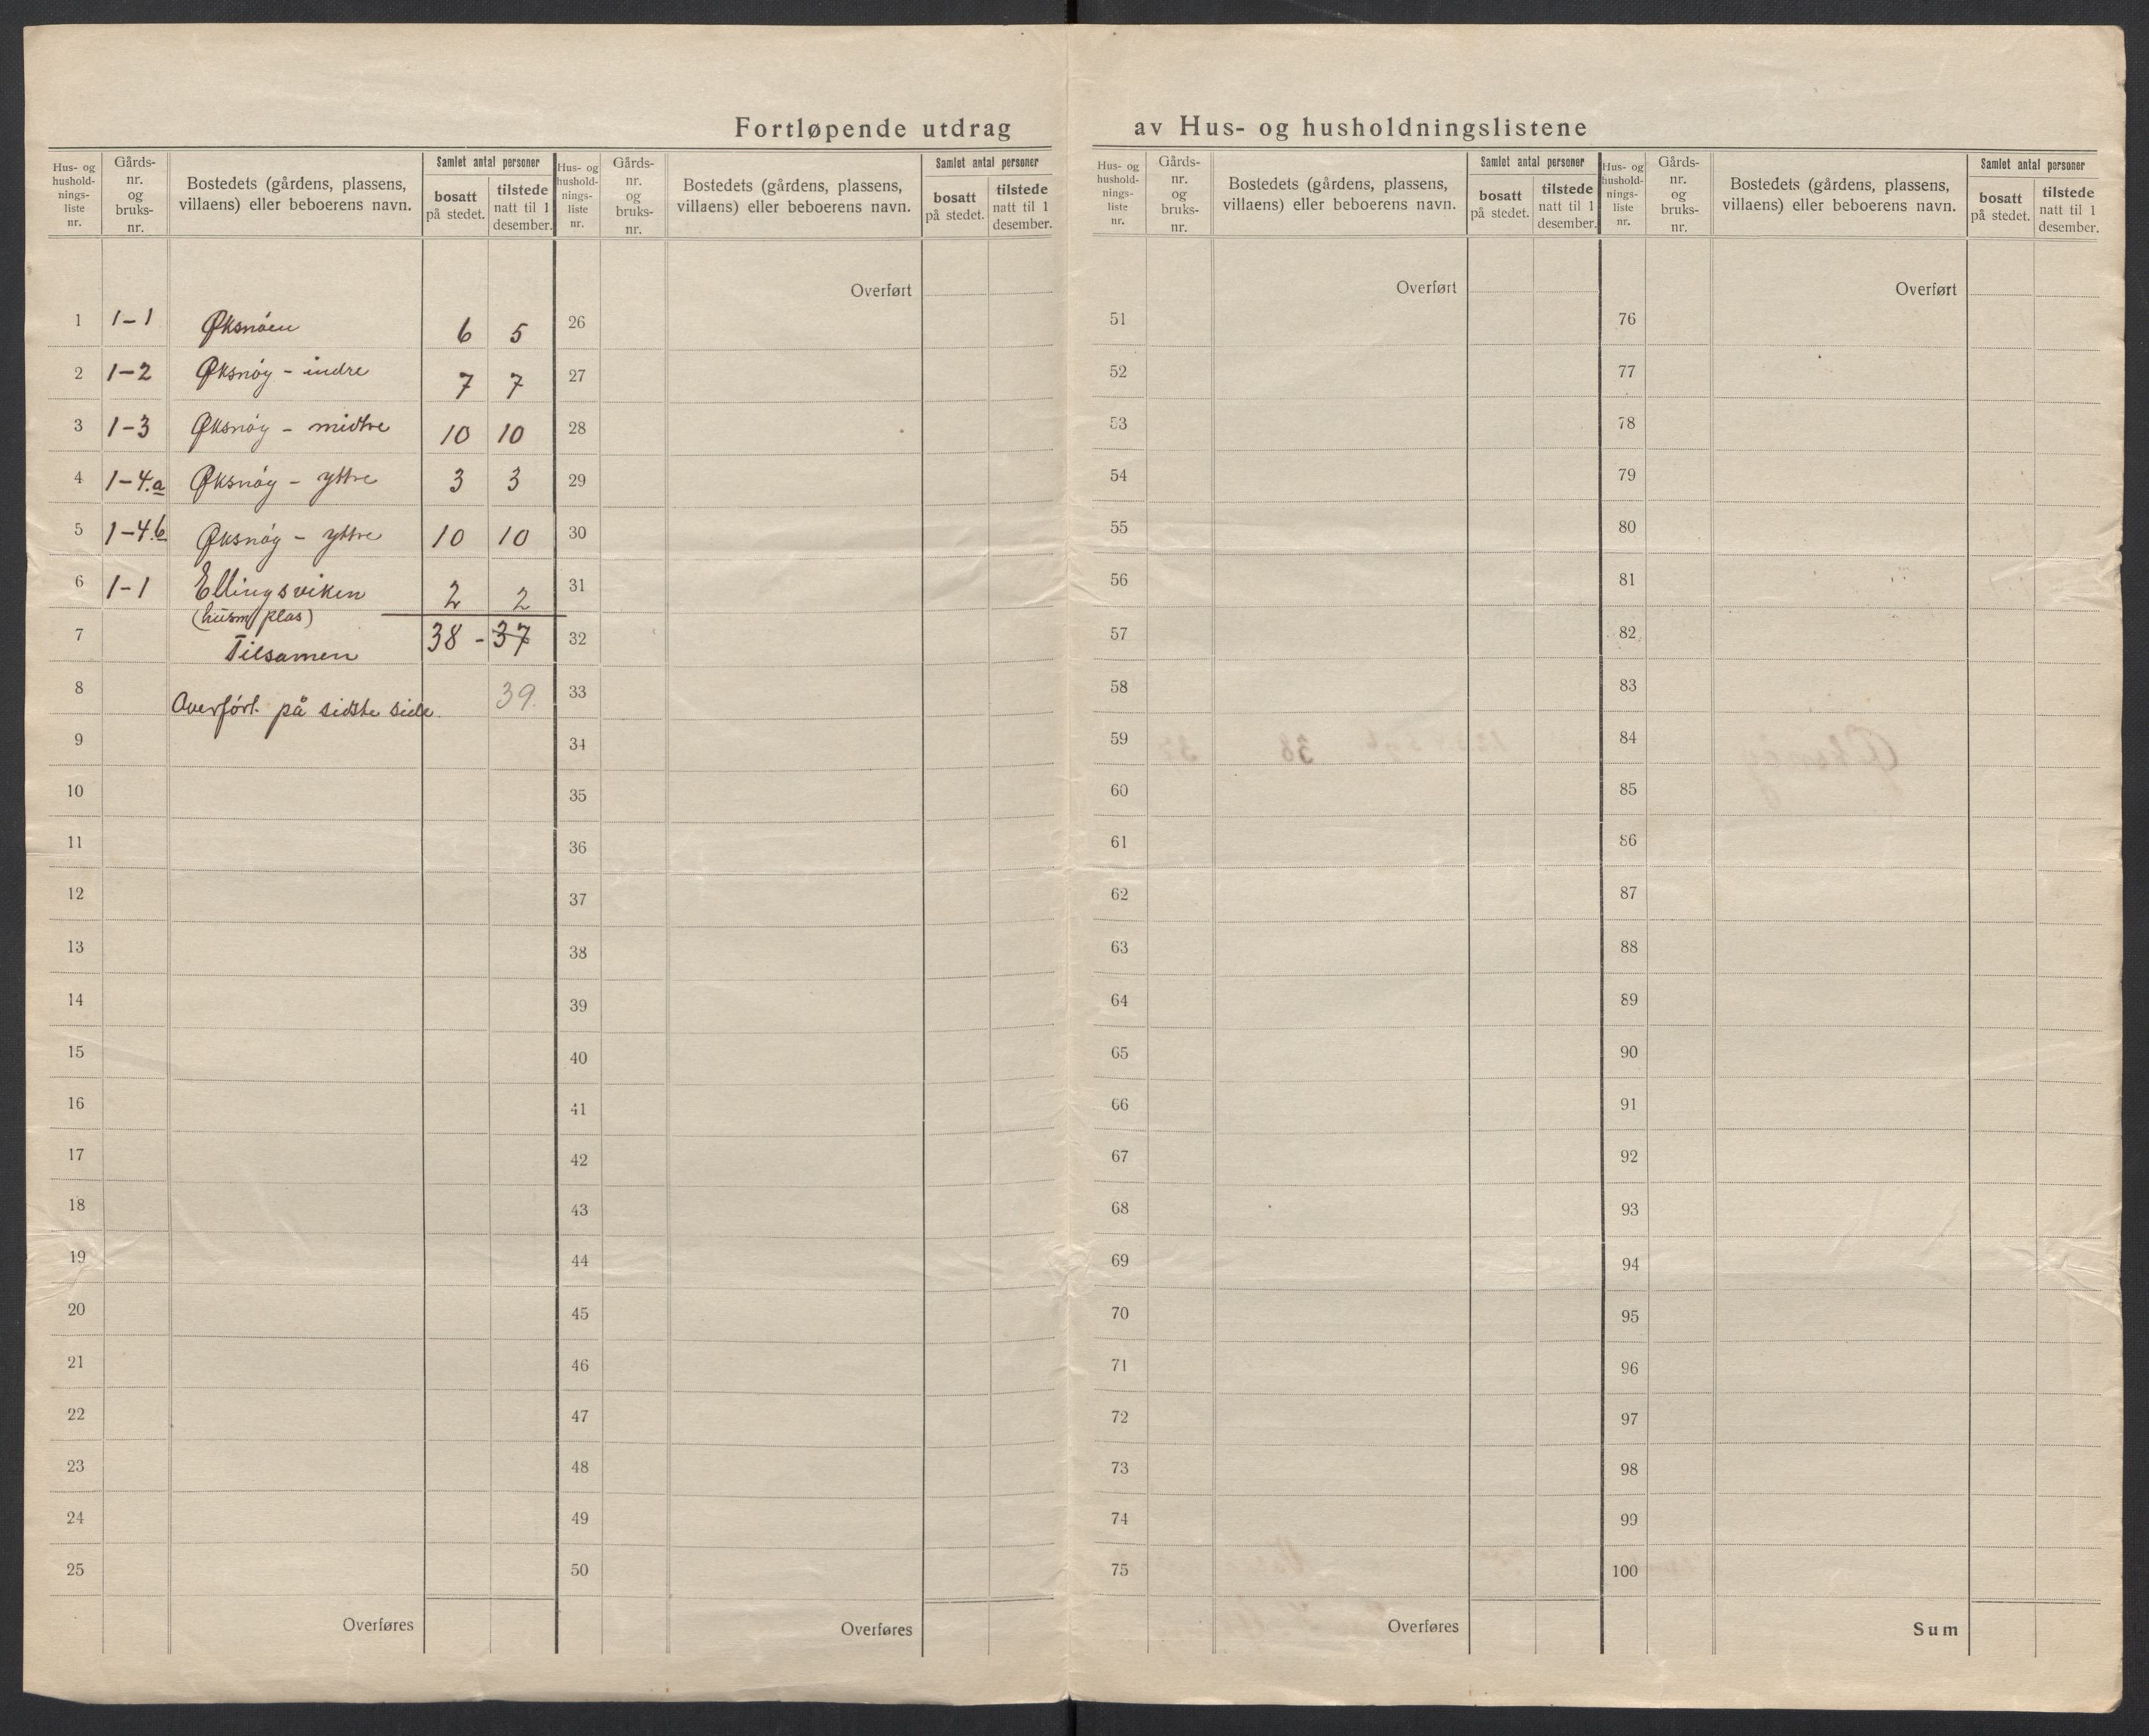 Fortløpende utdrag av Hus- og husholdningslistene
Hus- og hushold-nings-liste nr. Gårds-nr. og bruks-nr. Bostedets (gårdens, plassens, villaens) eller beboerens navn. Samlet antal personer bosatt på stedet. tilstede natt til 1 desember.
1 1-1 Øksnöen 6 5
2 1-2 Øksnöy - indre 7 7
3 1-3 Øksnöy - midtre 10 10
4 1-4.a Øksnöy - yttre 3 3
5 1-4.b Øksnöy - yttre 10 10
6 1-1 Ellingsviken 2 2
(husm plas)
7 Tilsamen 38 - 37
8 Overført på sidste side. 39.
9
10
11
12
13
14
15
16
17
18
19
20
21
22
23
24
25
Overføres
Hus- og hushold-nings-liste nr. Gårds-nr. og bruks-nr. Bostedets (gårdens, plassens, villaens) eller beboerens navn. Samlet antal personer bosatt på stedet. tilstede natt til 1 desember.
Overført
26
27
28
29
30
31
32
33
34
35
36
37
38
39
40
41
42
43
44
45
46
47
48
49
50
Overføres
Hus- og hushold-nings-liste nr. Gårds-nr. og bruks-nr. Bostedets (gårdens, plassens, villaens) eller beboerens navn. Samlet antal personer bosatt på stedet. tilstede natt til 1 desember.
Overført
51
52
53
54
55
56
57
58
59
60
61
62
63
64
65
66
67
68
69
70
71
72
73
74
75
Overføres
Hus- og hushold-nings-liste nr. Gårds-nr. og bruks-nr. Bostedets (gårdens, plassens, villaens) eller beboerens navn. Samlet antal personer bosatt på stedet. tilstede natt til 1 desember.
Overført
76
77
78
79
80
81
82
83
84
85
86
87
88
89
90
91
92
93
94
95
96
97
98
99
100
Sum